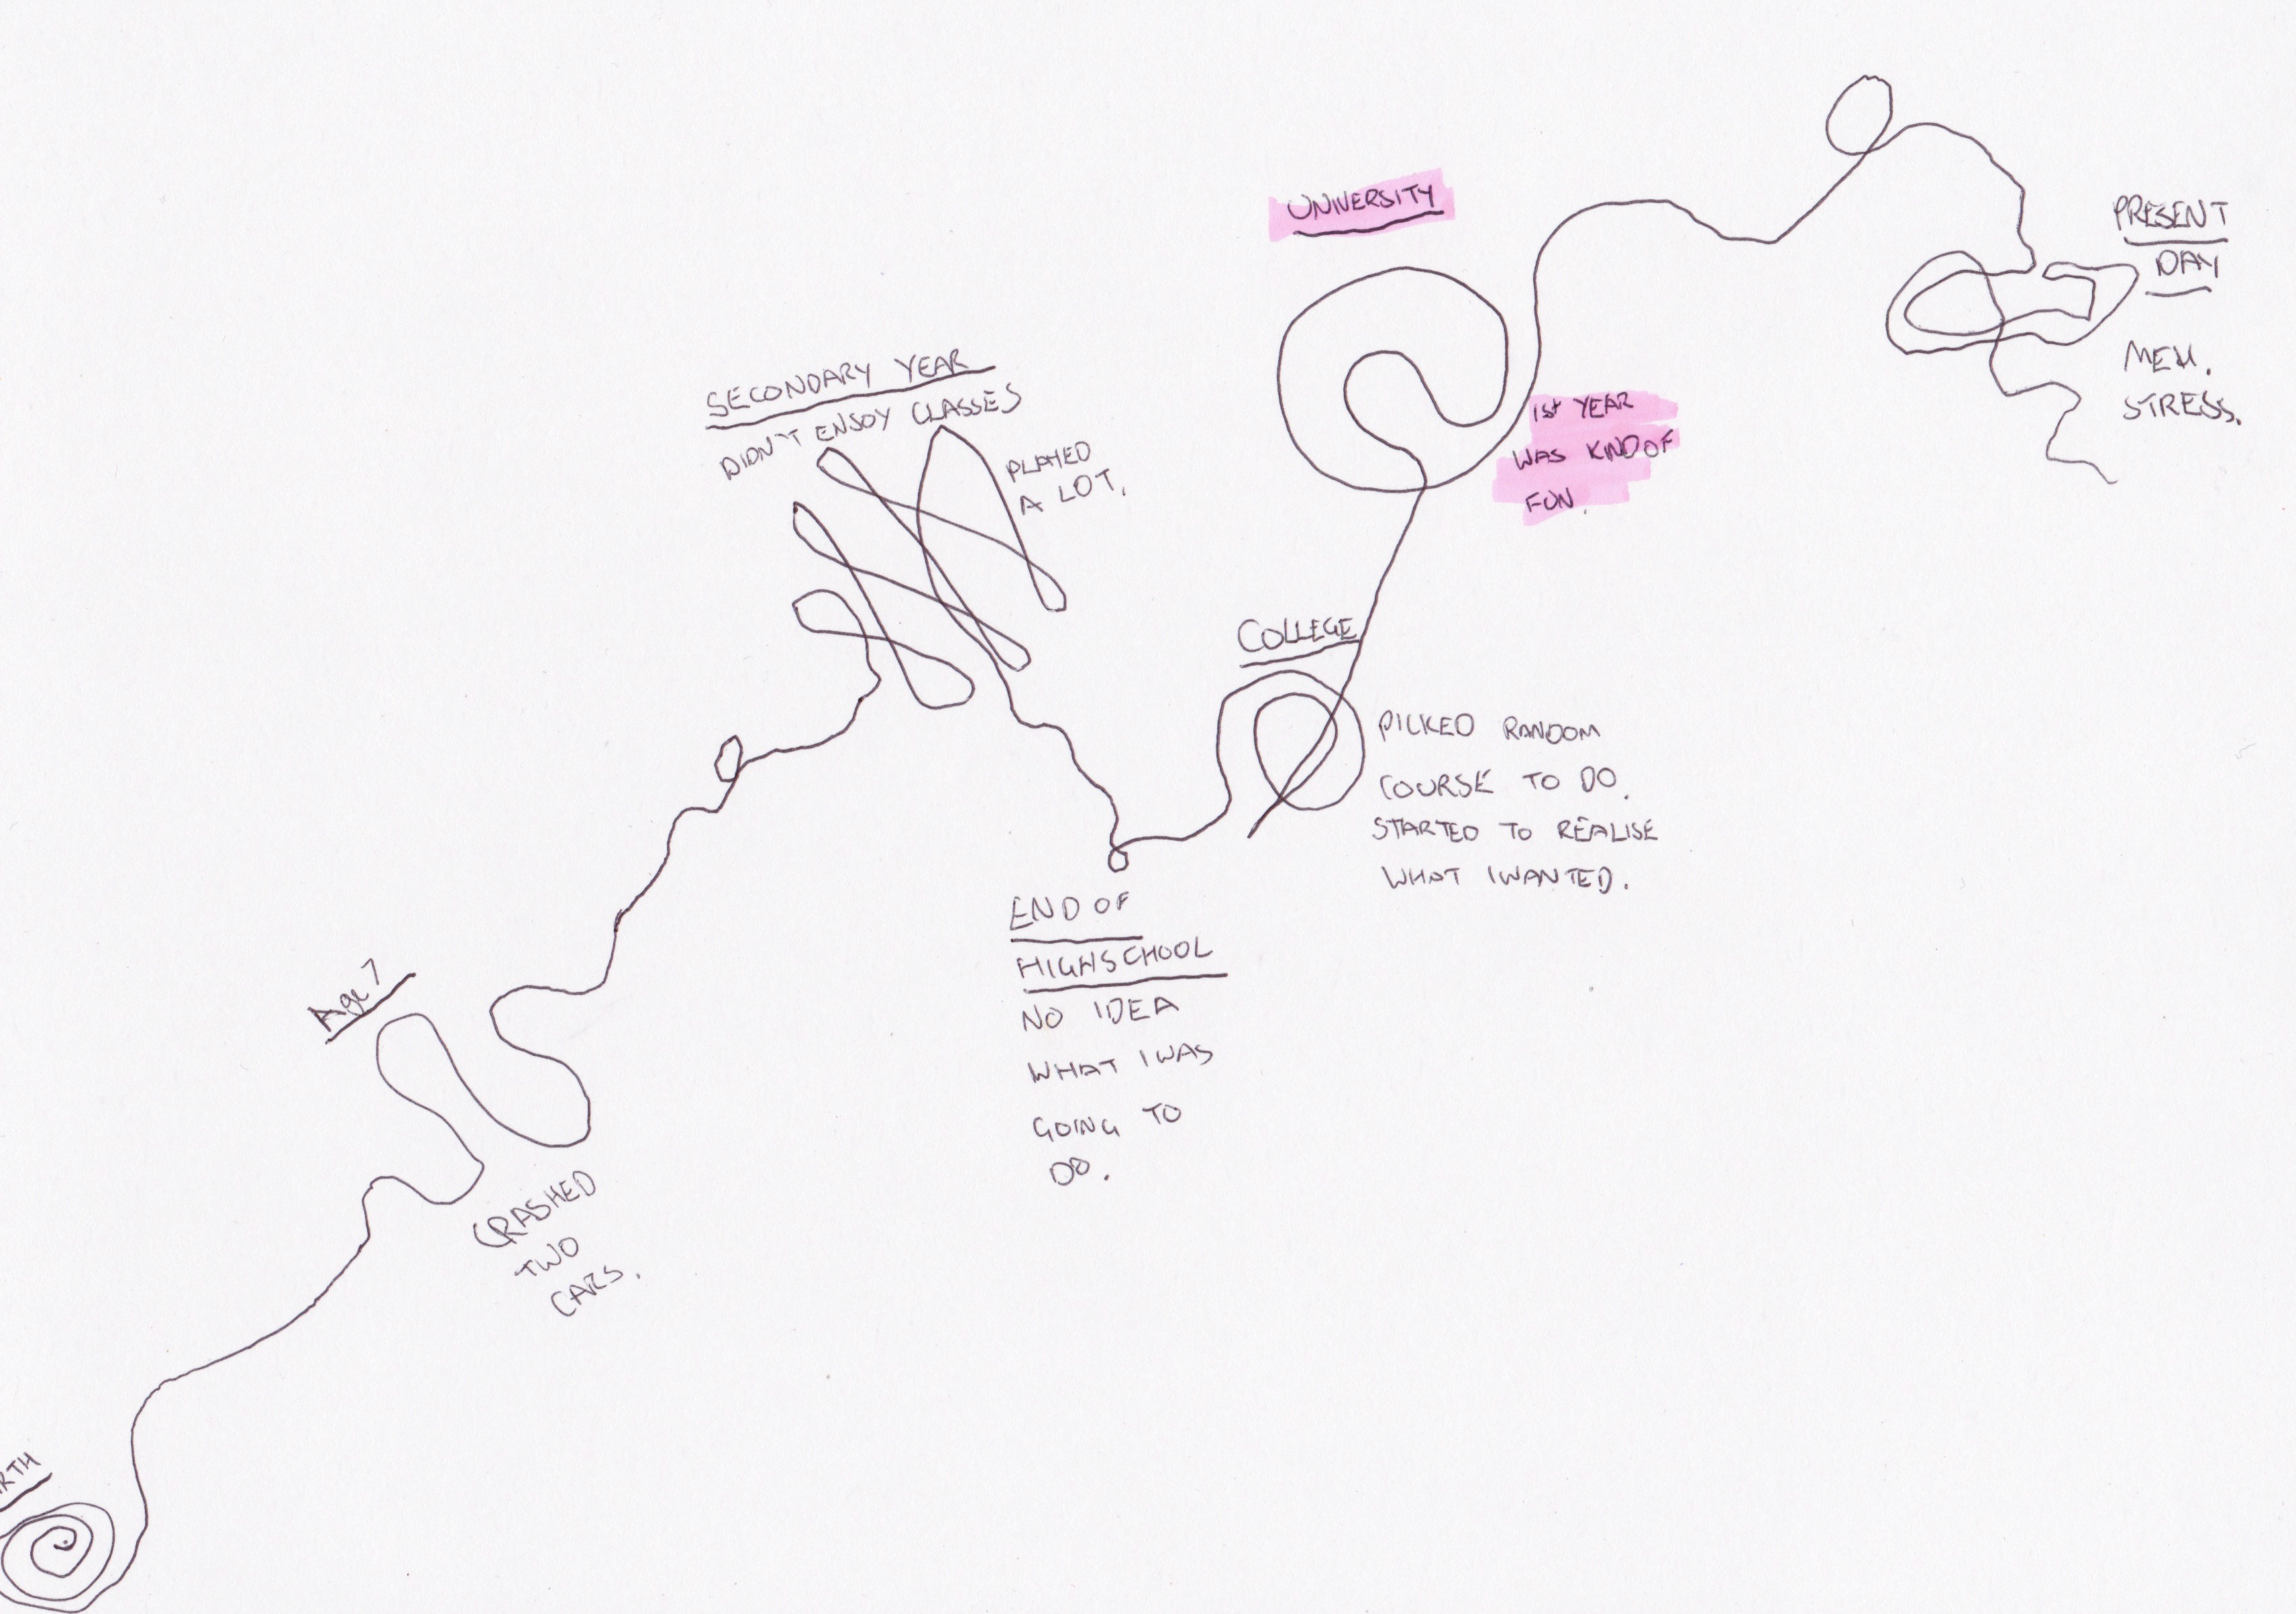 RTH
Age 7
CRASHED
TWO
CARS.
SECONDARY YEAR
DIDN'T ENJOY CLASSES
PLAYED
A LOT.
END OF
HIGHSCHOOL
NO IDEA
WHAT I WAS
GOING TO
DO.
COLLEGE
PICKED RANDOM
COURSE TO DO.
STARTED TO REALISE
WHAT I WANTED.
UNIVERSITY
1st YEAR
WAS KIND OF
FUN.
PRESENT
DAY
MEH.
STRESS.